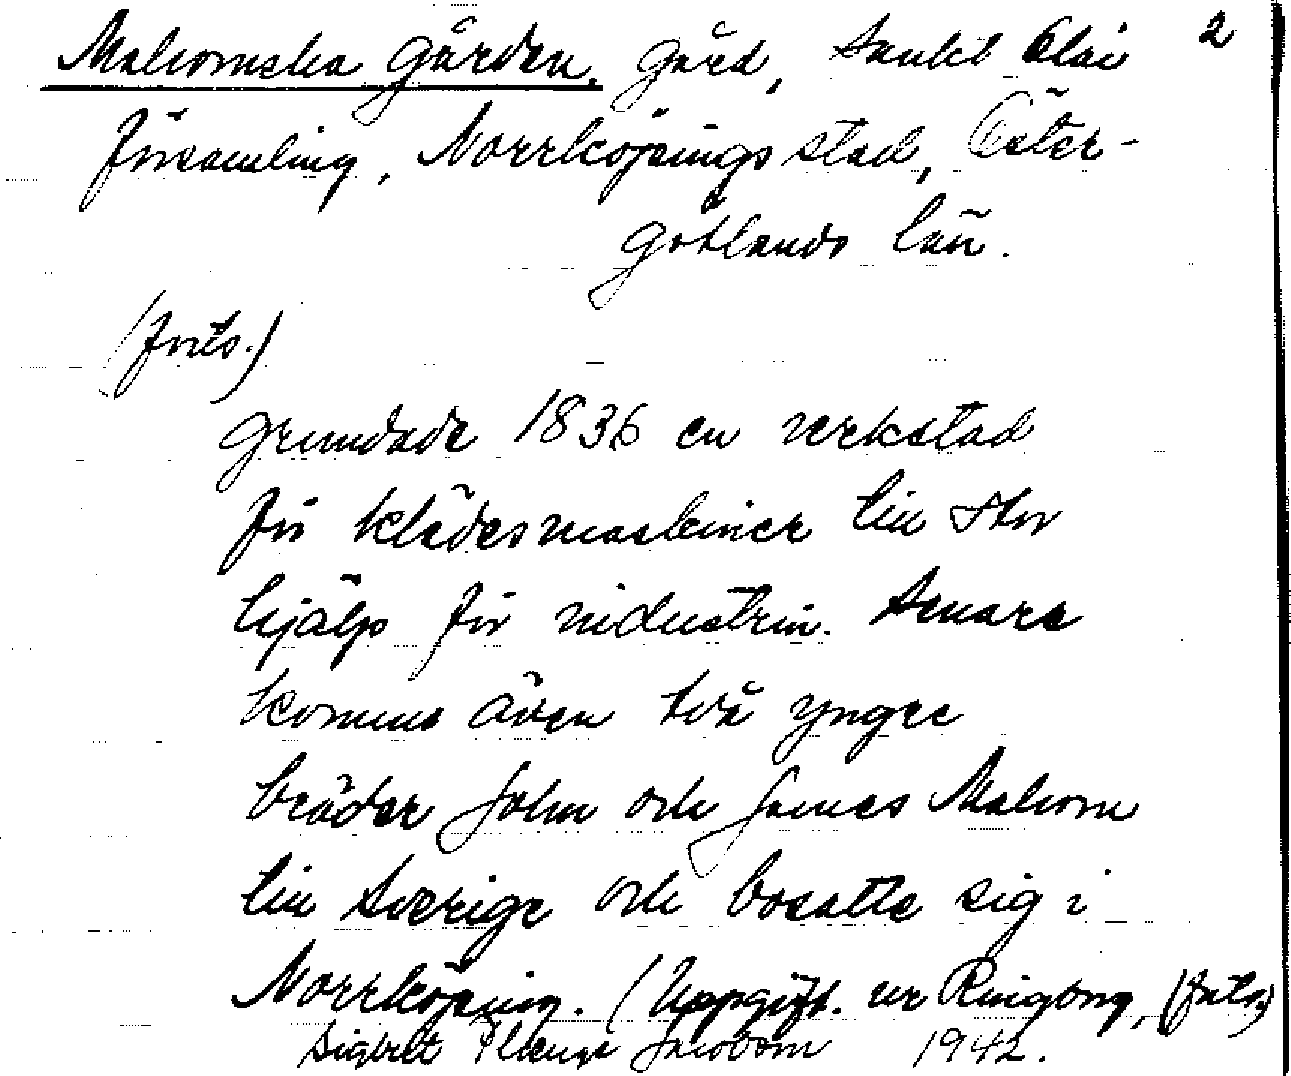 Malcomska Gården. Gård, Sankt Olai 2
församling, Norrköpings stad, Öster-
götlands län.
(forts.)
grundade 1836 en verkstad
för klädesmaskiner till stor
hjälp för industrin. Senare
kommo även två yngre
bröder John och James Malcom
till Sverige och bosatte sig i
Norrköping. (Uppgift. ur Ringborg, (forts.)
Sigbrit Plænge Jacobson 1942.